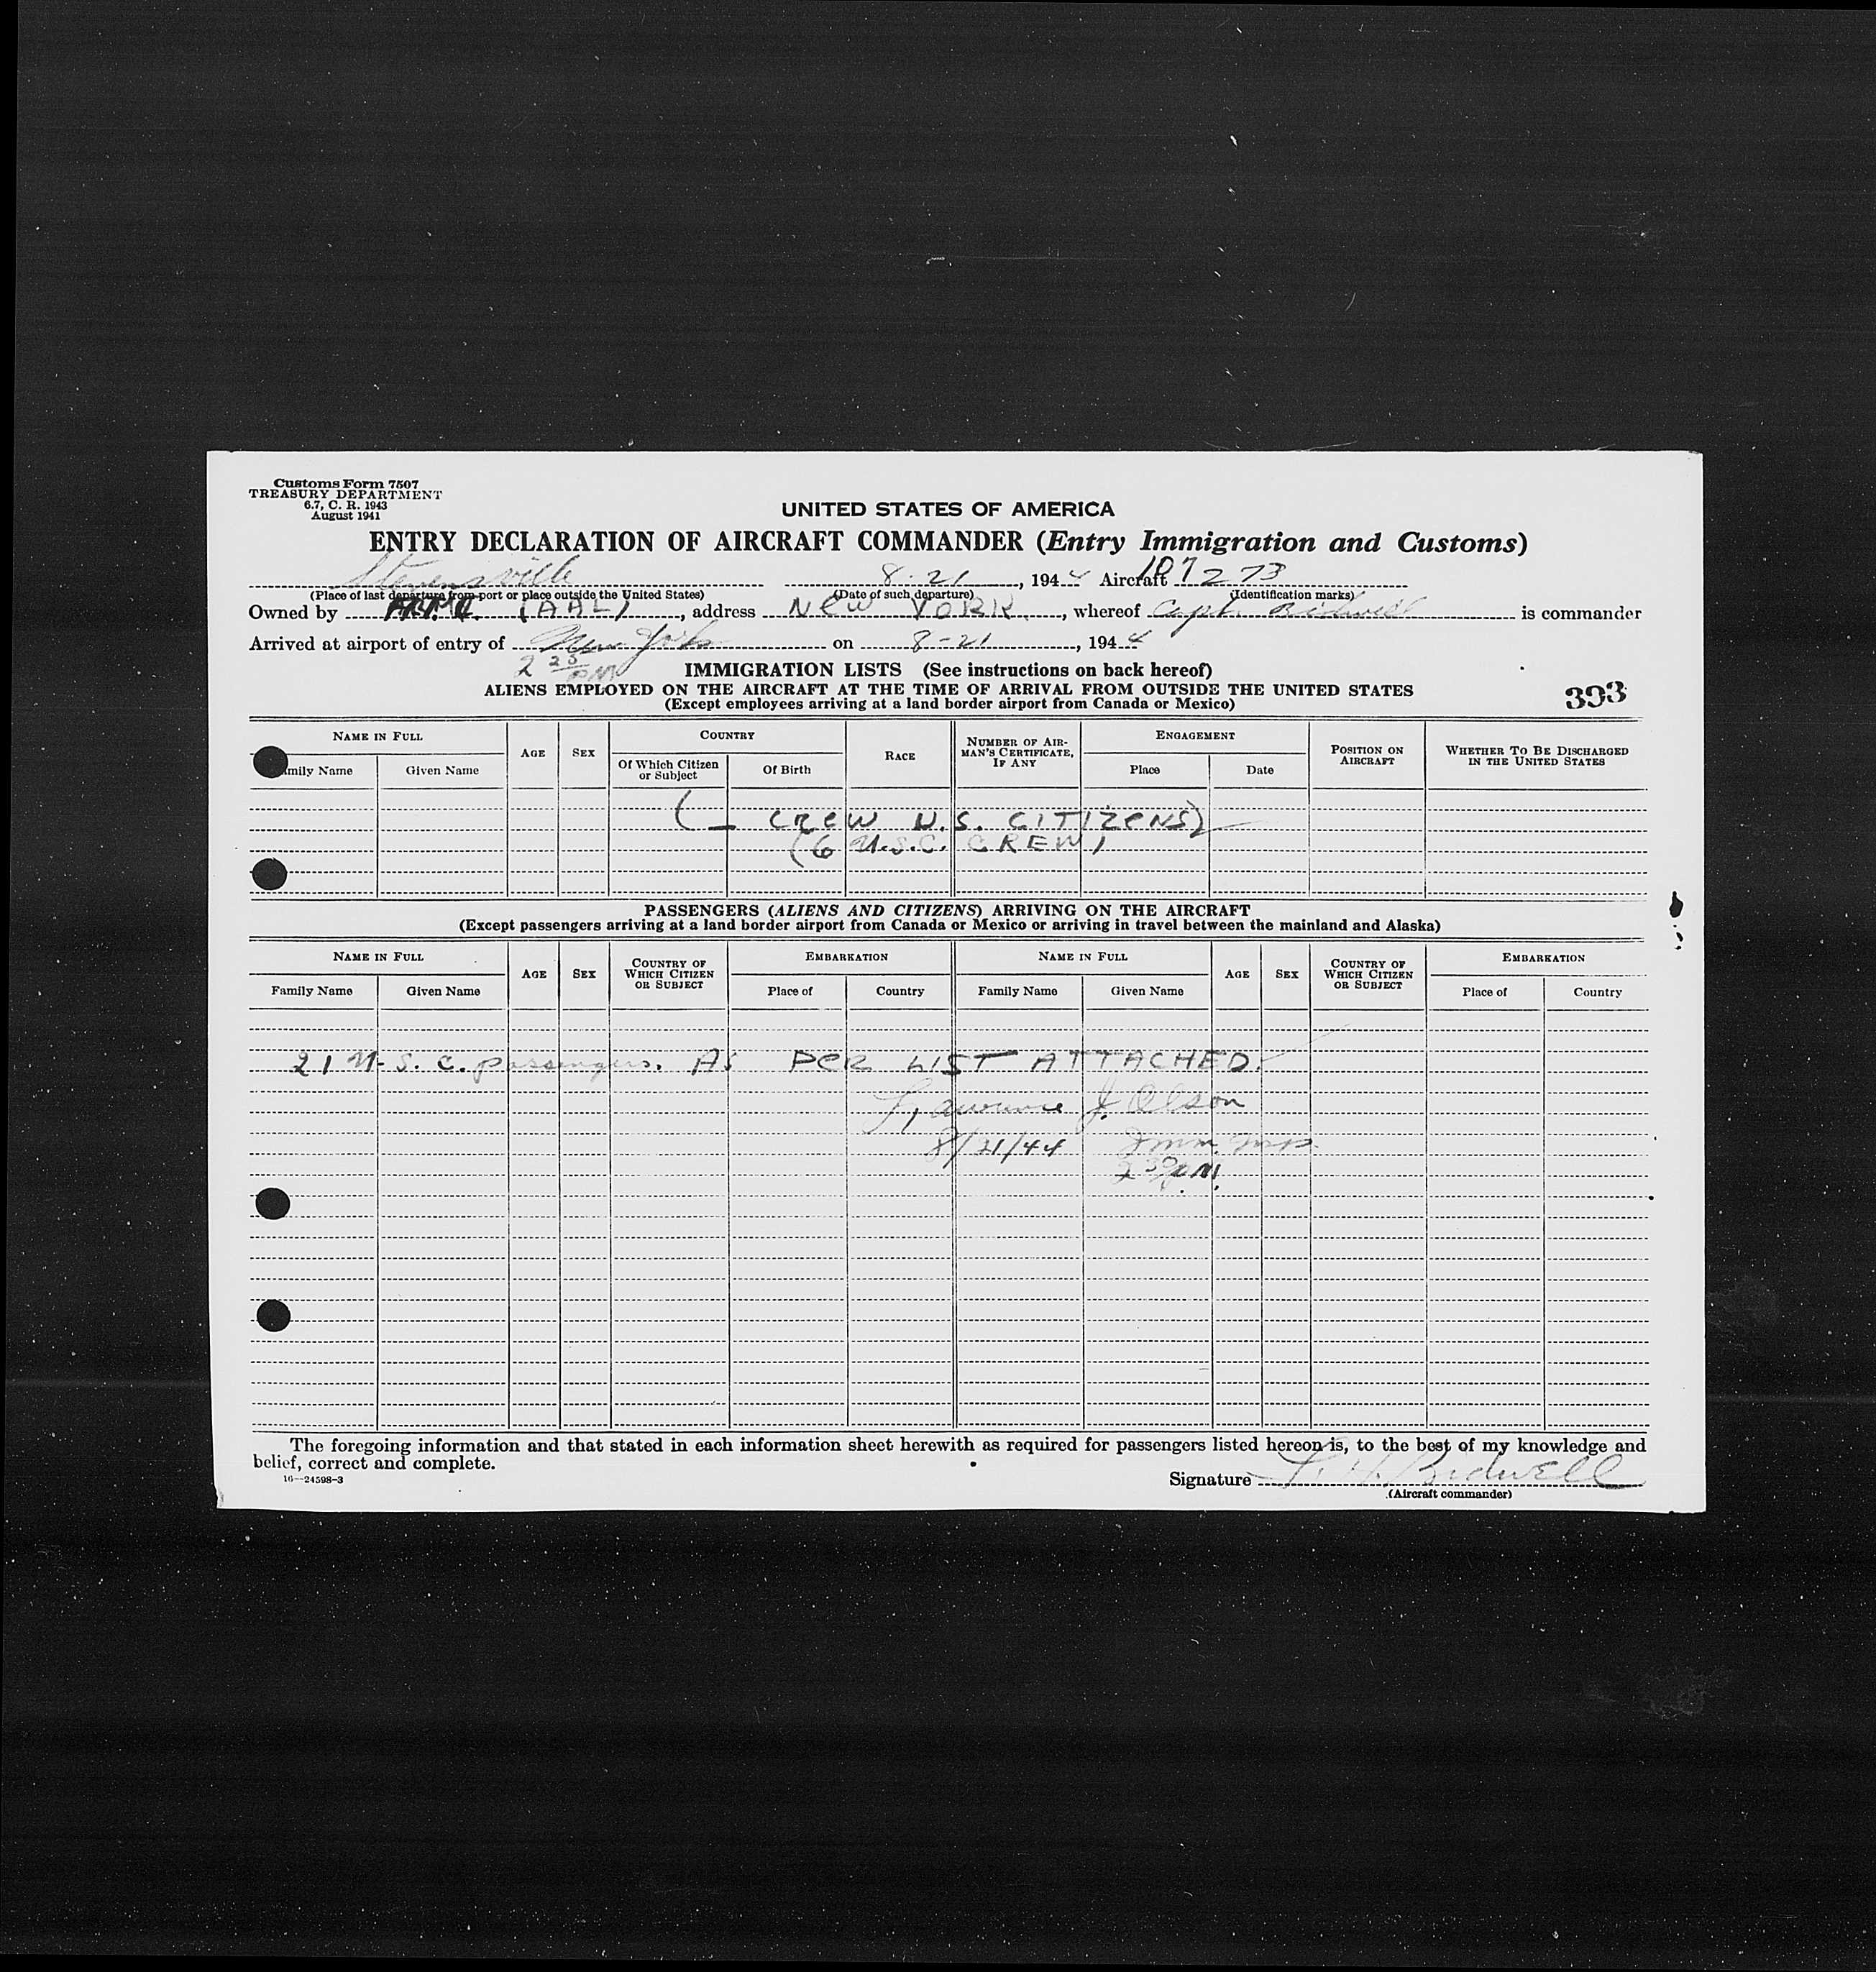 Customs Form 7507
TREASURY DEPARTMENT
6.7, C. R. 1943
August 1941
UNITED STATES OF AMERICA
ENTRY DECLARATION OF AIRCRAFT COMMANDER (Entry Immigration and Customs)
Stevensville 8-21, 1944 Aircraft 107273
(Place of last departure from port or place outside the United States) (Date of such departure) (Identification marks)
Owned by (AAL), address NEW YORK, whereof Capt. Bidwell is commander
Arrived at airport of entry of New York on 8-21, 1944
2 25 PM
IMMIGRATION LISTS (See instructions on back hereof)
ALIENS EMPLOYED ON THE AIRCRAFT AT THE TIME OF ARRIVAL FROM OUTSIDE THE UNITED STATES
(Except employees arriving at a land border airport from Canada or Mexico)
393
NAME IN FULL AGE SEX COUNTRY RACE NUMBER OF AIRMAN'S CERTIFICATE, IF ANY ENGAGEMENT POSITION ON AIRCRAFT WHETHER TO BE DISCHARGED IN THE UNITED STATES
mily Name Given Name Of Which Citizen or Subject Of Birth Place Date
( _ CREW U.S. CITIZENS)
(6 U.S.C. CREW)
PASSENGERS (ALIENS AND CITIZENS) ARRIVING ON THE AIRCRAFT
(Except passengers arriving at a land border airport from Canada or Mexico or arriving in travel between the mainland and Alaska)
NAME IN FULL AGE SEX COUNTRY OF WHICH CITIZEN OR SUBJECT EMBARKATION NAME IN FULL AGE SEX COUNTRY OF WHICH CITIZEN OR SUBJECT EMBARKATION
Family Name Given Name Place of Country Family Name Given Name Place of Country
21 U.S.C. passengers. AS PER LIST ATTACHED.
Lawrence J. Olson
8/21/44 Imm. Insp.
2 30 P.M.
The foregoing information and that stated in each information sheet herewith as required for passengers listed hereon is, to the best of my knowledge and
belief, correct and complete.
16—24598-3
Signature L. H. Bidwell
(Aircraft commander)